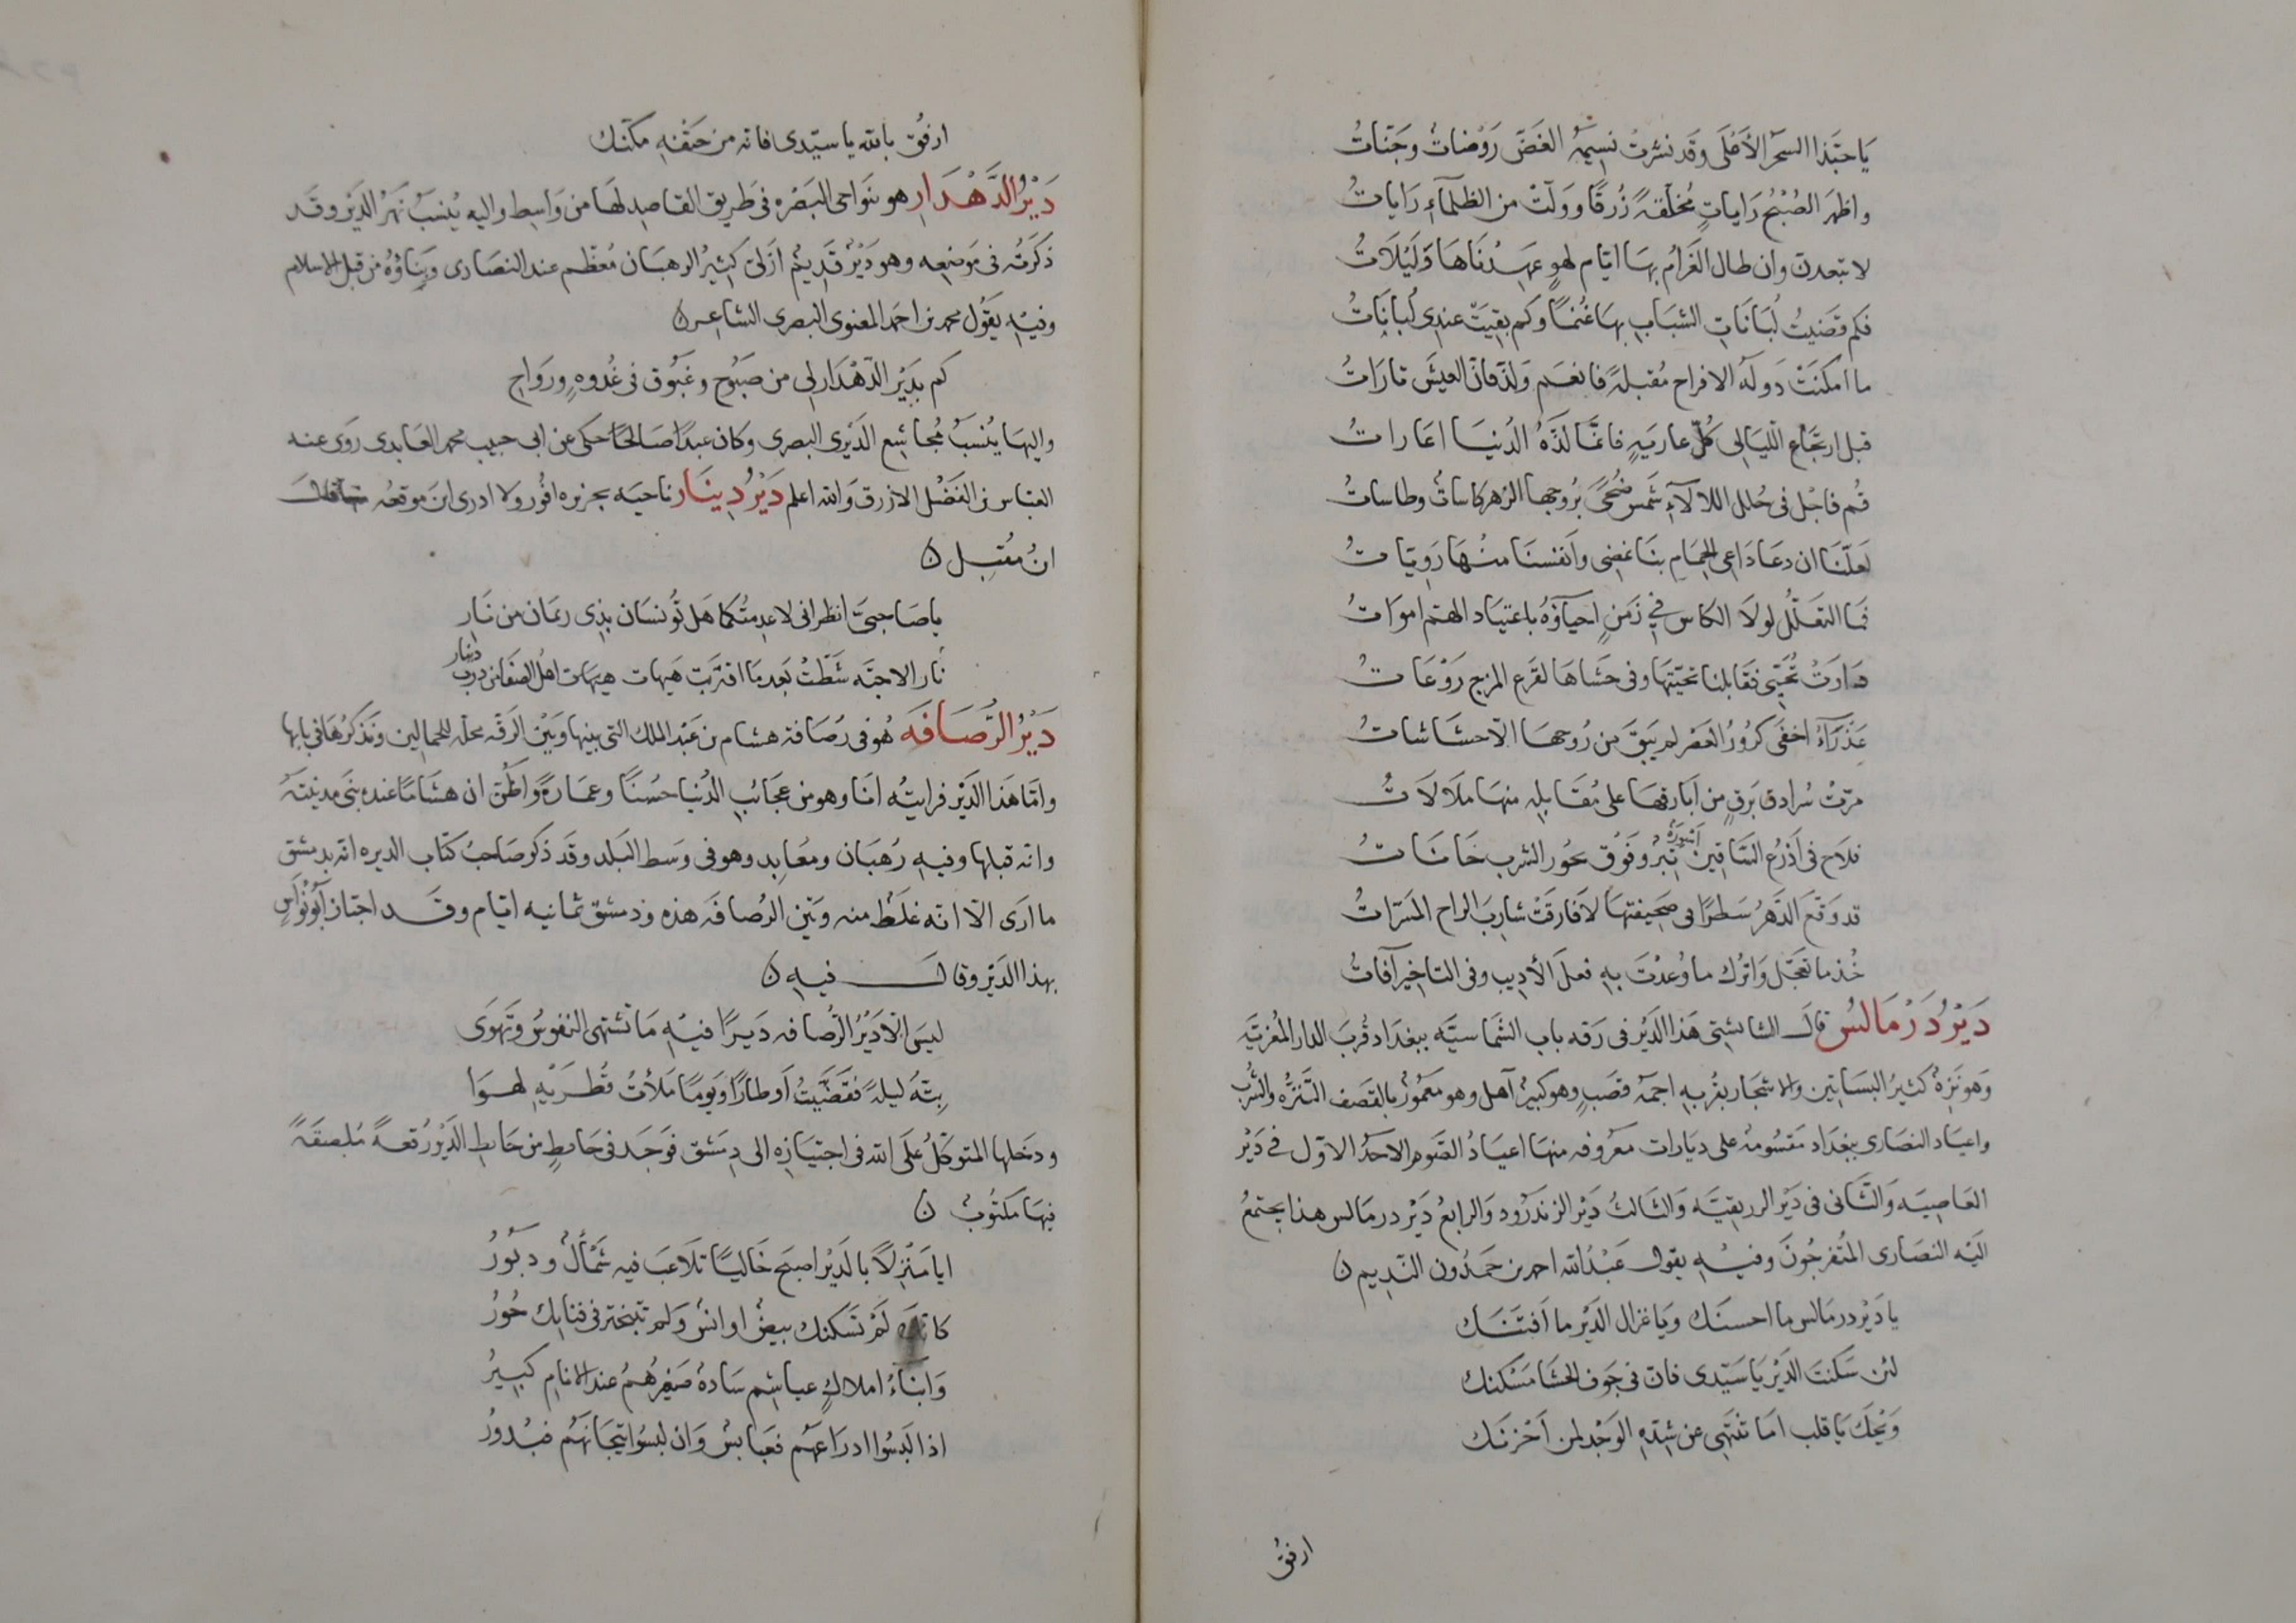 يَا حبَّذا السحَرُ الأَعْلَى وَقَد نَشَرتْ نسِيمَهُ الغَضَّ رَوْضاتٌ وجَنّاتُ
واظهَر الصُبْحُ رَاياتٍ مُخلّقةً زُرقًا وَوَلّتْ من الظلماءِ رَاياتُ
لا تبعدن وان طال الغَرامُ بهَا ايّام لهوٍ عَهِدْنَاهَا وَلَيْلَاتُ
فكم قضَيتُ لُبَانَاتِ الشبَابِ بهَا غُنمًا وكم بقِيَتْ عندِى لُبانَاتُ
ما امكنَتْ دَولَةُ الافراح مُقبلةً فانعَم وَلذّ فانّ العيشَ تارَاتُ
قبل ارتجَاع الليَالِى كُلّ عاريَةٍ فانمَّا لذّةُ الدُنيَا اعَاراتُ
قُم فاجْل فى حُلل اللالآءِ شَمس ضُحًى بُروجها الزُهر كاساتٌ وطاساتُ
لعَلّنَا ان دعَا دَاعِى الحِمَامِ بنَا نمضِى وانفسنَا منْهَا رَوِيّاتُ
فمَا التعَلّل لولَا الكاس فِي زَمَنٍ احيآؤهُ باعتيَاد الهَمّ اموَاتُ
دَارَتْ تُحَيّي فقَابلنا تحيّتهَا وفى حَشاهَا لقَرْع المزج رَوْعَاتُ
عَذْرَآءُ اخفَى كرُورُ العَصْر لم يَبقَ من رُوحهَا الّا حشَاشاتُ
مرّتْ سُرادق بَرقٍ من اَبَارقهَا على مُقَابلِهِ منهَا مَلَالَاتُ
فلاح فى اَذرُع السَّاقِين اَسْوِرَةُ تِبْرٌ وفَوْق نحُور الشرب خانَاتُ
قد وَقّعَ الدّهرُ سَطرًا فى صَحيفَتهَا لَا فَارقَتْ شارِبَ الراح المَسَرّاتُ
خُذ ما تعَجّل وَاترُك ما وُعِدْتَ بِهِ فعلَ الأديب وفى التاخِير آفاتُ
دَيْرُ دَرْمَالسُ قال الشابشتى هَذا الدَيْر فى رَقه باب الشّمَاسيّه ببغدَاد قُربَ الدار المُعزيَّه
وَهو نَزِهٌ كثيرُ البسَاتِين والاشجَار بقُربه اجمَة قصَبٍ وهو كبيرٌ آهل وهو مَعْمُورٌ بالقصَف التّنَزُّه والشُربْ
واعيَاد النصَارى ببغدَاد مقسُومةٌ على ديَارات مَعرُوفه منهَا اعيَادُ الصَّوم الاحَدُ الاوّل فى دَيْر
العَاصِيه وَالثّانى فى دَيْر الزريقيّه وَالثالثُ دَيْر الزندرود وَالرابعُ دَيْر درمَالس هذا يجتمعُ
اليَه النصَارى المُتفرجُونَ وفيْهِ يقول عَبْدُ الله احمد بن حَمدُون النّدِيم ن
يا دَيْر درمَالس ما احسنَك وَيَا غزَال الدَيْر ما اَفتَنَك
لئن سَكنتَ الدَيْر يَا سَيّدى فان فى جَوفِ الحشَا مَسْكنك
وَيْحَكَ يَا قلب امَا تنتَهى عن شِدّةِ الوَجْدِ لمن اَحْزنَك
ارفق
ارفُق بالله يا سيّدى فانّه من حَتْفِهِ مكّنك
دَيْرُ الدَّهْدَارِ هو بنَواحى البَصْره فى طَرِيق القاصِدِ لهَا من وَاسِط واليه يُنسَبُ نَهَرُ الدَيْر وقَد
ذكَرتُه فى مَوضعِه وهو دَيْرٌ قَديْم ازَلىٌّ كثيرُ الرهبَان مُعَظّم عند النصَارى وبَنَاؤهُ من قبلِ الاسلام
وفيْهِ يَقُول محمد بن احمَد المَعنوى البصرى الشاعر ن
كم بدَيْر الدّهْدَار لِى من صبُوح وغَبُوق فى غُدوةٍ ورَوَاحِ
واليهَا يُنسَبُ مُجَاشِع الدَيرى البصرى وكان عبدًا صَالحًا حكى عن ابى حبيب محمد العَابدى رَوى عنه
العبّاس بن الفَضْل الازرق وَالله اعلم دَيْرُ دِينَار ناحيَه بجزيره اقُور ولا ادرى اين موقعهُ قال
ابنُ مُقبِل ن
يا صَاحِبَىّ انظرانى لا عدمتُكمَا هَل تُؤنسَان بذِى ريمَان من نَارِ
نَار الاحبّه شَطّتْ بَعدمَا اقترَبَتْ هَيهات هيهَات اهلُ الصفَا من دير دينار
دَيْرُ الرُّصَافَه هُو فى رُصَافة هشام بن عَبْد الملك التى بينها وبَيْن الرَقّه مرحلة للحمالِين ونَذكرُهَا فى بابِها
وامّا هَذا الدَيْر فرايتُه انَا وهو من عَجَائبِ الدُنيا حسُنًا وعمَارةً واظُنّ ان هشَامًا عنده بنَى مدينَتهُ
وانه قبلها وفيهِ رُهبَان ومعَابِد وهو فى وسَط البَلد وقَد ذكر صَاحبُ كتَاب الديره انّه بدمشق
ما ارَى الّا انّه غلَط منه وبَيْن الرُصافَه هذه ودمشق ثمانيه ايّام وقَد اجتاز اَبُو نُوَاسٍ
بهذا الدَيْر وقال فيهِ ن
ليسَ الّا دَيْرُ الرُّصافه دَيرًا فيْهِ مَا تشتهى النفُوسُ وتَهوَى
بِتّهُ ليلةً فقَضّيتُ اَوطارًا وَيَومًا مَلأتُ قُطرَيْهِ لهوَا
ودخَلها المتوكلُ علَى الله فى اجتيازِه الى دِمَشق فوَجَد فى حَايطٍ من حَايطِ الدَيْر رُقعةً مُلصقَةً
فيهَا مكتُوبٌ ن
ايا مَنْزِلًا بالدَيْر اصبَح خَاليًا تلَاعَبَ فيه شَمْأَلٌ ودبُورُ
كانّك لَمْ تسَكنك بيضٌ اوانسٌ وَلم تتبختر فى فنائِك حُورُ
وَابنَاءُ املاكٍ عباشِم سَادةٌ صَغِيرُهُمُ عند الانامِ كبيرُ
اذا لَبسُوا ادرَاعَهُم فعَبابسٌ وَان لبسُوا تيجَانَهُم فبُدورُ